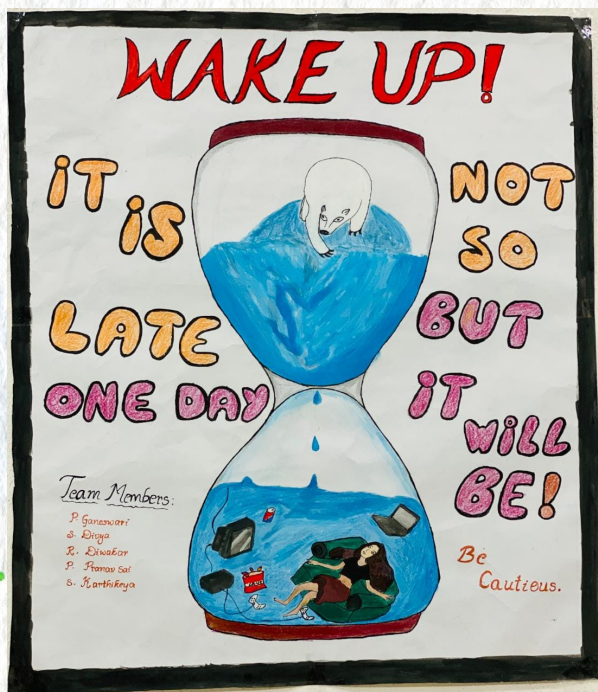 WAKE UP!
iT iS NOT
SO
LATE BUT
ONE DAY iT
WiLL
BE!
Team Members:
P. Ganeswari
S. Divya
R. Diwakar
P. Pranav Sai
S. Karthikeya
Be
Cautious.